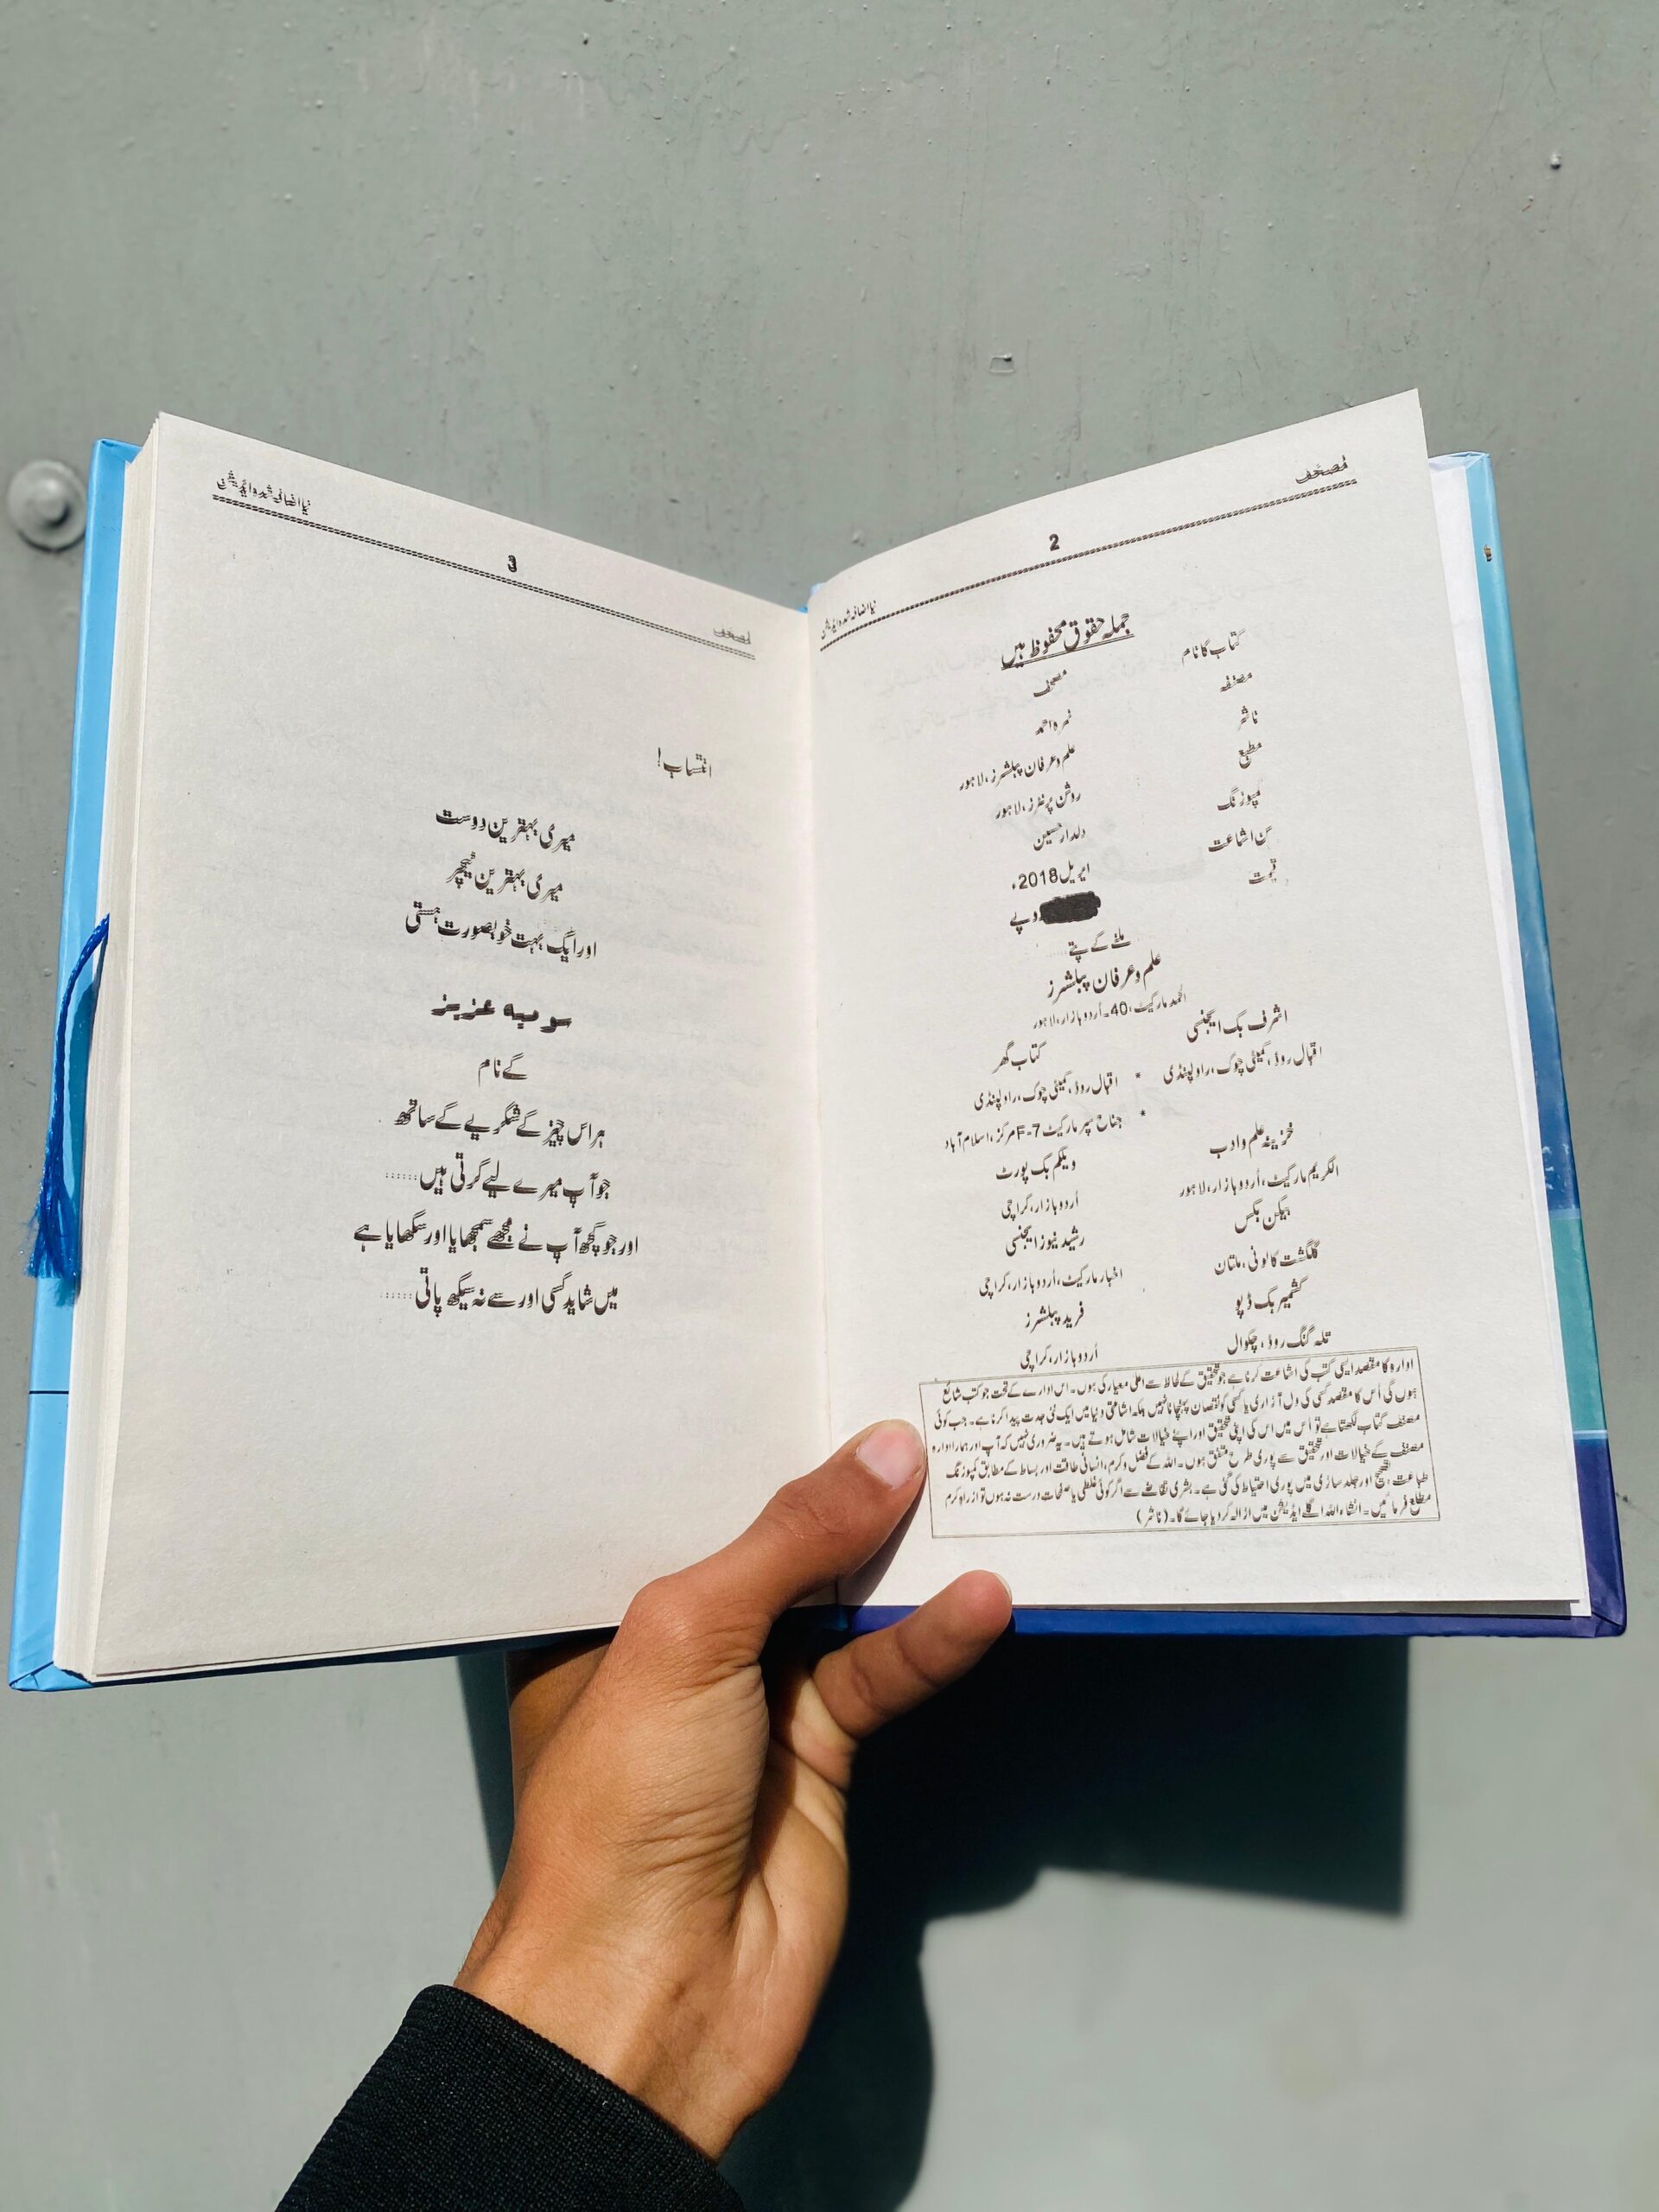 مصحف
2
نیا اضافہ شدہ ایڈیشن
جملہ حقوق محفوظ ہیں
کتاب کا نام مصحف
مصنفہ نمرہ احمد
ناشر علم و عرفان پبلشرز، لاہور
مطبع روشن پرنٹرز، لاہور
کمپوزنگ دلدار حسین
سن اشاعت اپریل 2018ء
قیمت روپے
ملنے کے پتے
علم و عرفان پبلشرز
الحمد مارکیٹ، 40۔ اُردو بازار، لاہور
اشرف بک ایجنسی کتاب گھر
اقبال روڈ، کمیٹی چوک، راولپنڈی * اقبال روڈ، کمیٹی چوک، راولپنڈی
* جناح سپر مارکیٹ F-7 مرکز، اسلام آباد
خزینہ علم و ادب ویلکم بک پورٹ
الکریم مارکیٹ، اُردو بازار، لاہور اُردو بازار، کراچی
بیکن بکس رشید نیوز ایجنسی
گلگشت کالونی، ملتان اخبار مارکیٹ، اُردو بازار، کراچی
کشمیر بک ڈپو فرید پبلشرز
تلہ گنگ روڈ، چکوال اُردو بازار، کراچی
ادارہ کا مقصد ایسی کتب کی اشاعت کرنا ہے جو تحقیق کے لحاظ سے اعلیٰ معیار کی ہوں۔ اس ادارے کے تحت جو کتب شائع
ہوں گی اُس کا مقصد کسی کی دل آزاری یا کسی کو نقصان پہنچانا نہیں بلکہ اشاعتی دنیا میں ایک نئی جدت پیدا کرنا ہے۔ جب کوئی
مصنف کتاب لکھتا ہے تو اُس میں اس کی اپنی تحقیق اور اپنے خیالات شامل ہوتے ہیں۔ یہ ضروری نہیں کہ آپ اور ہمارا ادارہ
مصنف کے خیالات اور تحقیق سے پوری طرح متفق ہوں۔ اللہ کے فضل و کرم، انسانی طاقت اور بساط کے مطابق کمپوزنگ
طباعت، تصحیح اور جلد سازی میں پوری احتیاط کی گئی ہے۔ بشری تقاضے سے اگر کوئی غلطی یا صفحات درست نہ ہوں تو از راہ کرم
مطلع فرمائیں۔ انشاءاللہ اگلے ایڈیشن میں ازالہ کر دیا جائے گا۔ (ناشر)
مصحف
3
نیا اضافہ شدہ ایڈیشن
انتساب!
میری بہترین دوست
میری بہترین ٹیچر
اور ایک بہت خوبصورت ہستی
سومیہ عزیز
کے نام
ہر اس چیز کے شکریے کے ساتھ
جو آپ میرے لیے کرتی ہیں......
اور جو کچھ آپ نے مجھے سمجھایا اور سکھایا ہے
میں شاید کسی اور سے نہ سیکھ پاتی......